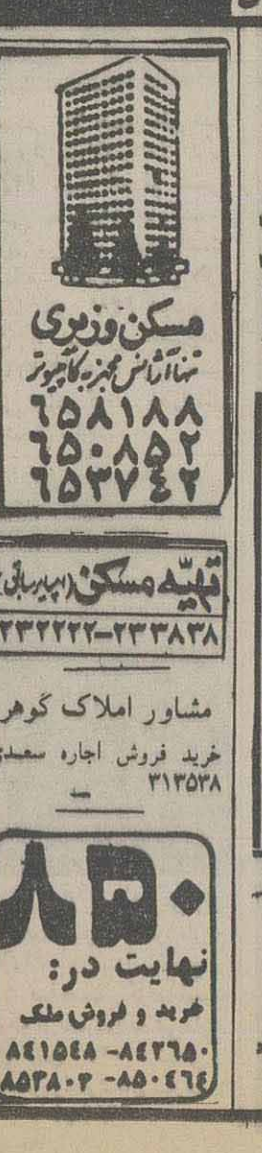 مسکن وزیری
تنها آژانس مجهز به کامپیوتر
۶۵۸۱۸۸
۶۵۰۸۵۲
۶۵۳۷۴۲
تهیه مسکن
۲۳۲۲۲۲-۲۳۳۸۳۸
مشاور املاک گوهر
خرید فروش اجاره سعدی
۳۱۳۵۳۸
۸۵۰
نهایت در:
خرید و فروش ملک
۸۴۱۵۴۸-۸۴۲۶۵۰
۸۵۲۸۰۲-۸۵۰۴۶۴